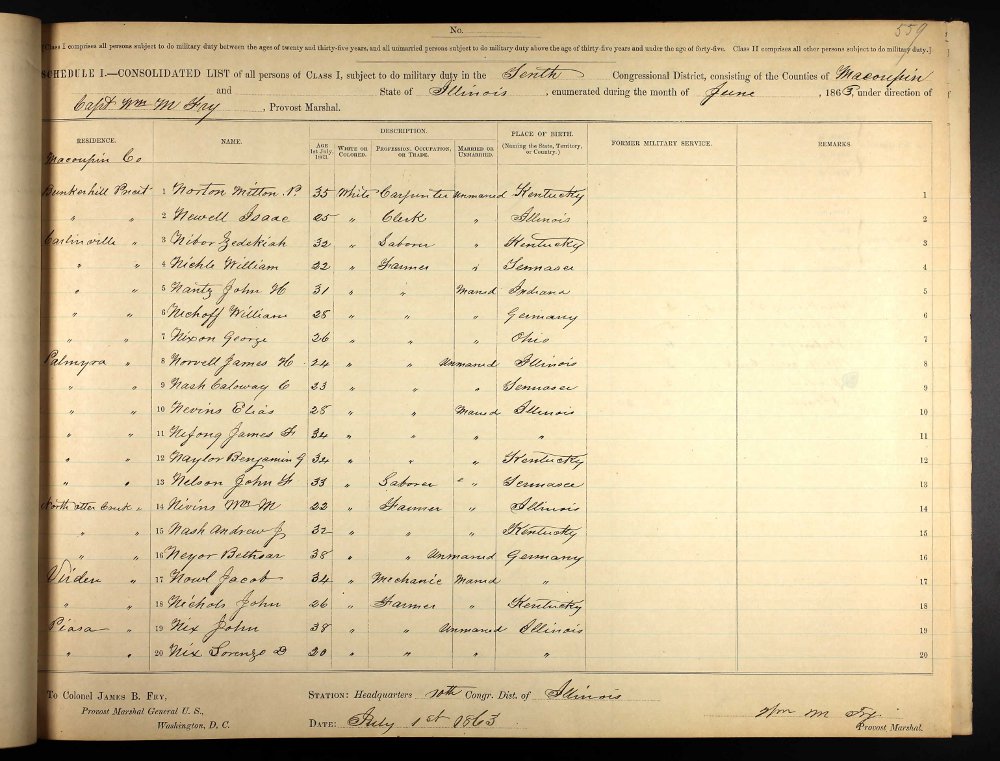 559
No.
[Class I comprises all persons subject to do military duty between the ages of twenty and thirty-five years, and all unmarried persons subject to do military duty above the age of thirty-five years and under the age of forty-five. Class II comprises all other persons subject to do military duty.]
SCHEDULE I.—CONSOLIDATED LIST of all persons of CLASS I, subject to do military duty in the Tenth Congressional District, consisting of the Counties of Macoupin
and State of Illinois, enumerated during the month of June, 1863, under direction of
Capt Wm M Fry, Provost Marshal.
RESIDENCE. NAME. DESCRIPTION. PLACE OF BIRTH. (Naming the State, Territory, or Country.) FORMER MILITARY SERVICE. REMARKS.
AGE 1st July, 1863. WHITE OR COLORED. PROFESSION, OCCUPATION, OR TRADE. MARRIED OR UNMARRIED.
Macoupin Co
Bunkerhill Precit 1 Norton Milton P. 35 White Carpenter Unmared Kentucky 1
" " 2 Newell Isaac 25 " Clerk " Illinois 2
Carlinville " 3 Nibor Zedekiah 32 " Laborer " Kentucky 3
" " 4 Nichle William 22 " Farmer " Tennasee 4
" " 5 Nantz John H 31 " " Mared Indiana 5
" " 6 Niehoff William 28 " " " Germany 6
" " 7 Nixon George 26 " " " Ohio 7
Palmyra " 8 Norvell James H 24 " " Unmared Illinois 8
" " 9 Nash Caloway C 23 " " " Tennasee 9
" " 10 Nevins Elias 28 " " Mared Illinois 10
" " 11 Nifong James F 34 " " " " 11
" " 12 Naylor Benjamin G 34 " " " Kentucky 12
" " 13 Nelson John F 33 " Laborer " " Tennasee 13
North otter Creek " 14 Nivins Wm M 22 " Farmer " Illinois 14
" " 15 Nash Andrew J 32 " " " Kentucky 15
" " 16 Neyor Bethsar 38 " " Unmared Germany 16
Virden " 17 Nowl Jacob 34 " Mechanic Mared " 17
" " 18 Nichols John 26 " Farmer " Kentucky 18
Piasa " 19 Nix John 38 " " Unmared Illinois 19
" " 20 Nix Lorenzo D 20 " " " " 20
To Colonel JAMES B. FRY,
Provost Marshal General U. S.,
Washington, D. C.
STATION: Headquarters 10th Congr. Dist. of Illinois
DATE: July 1st 1863
Wm M Fry
Provost Marshal.